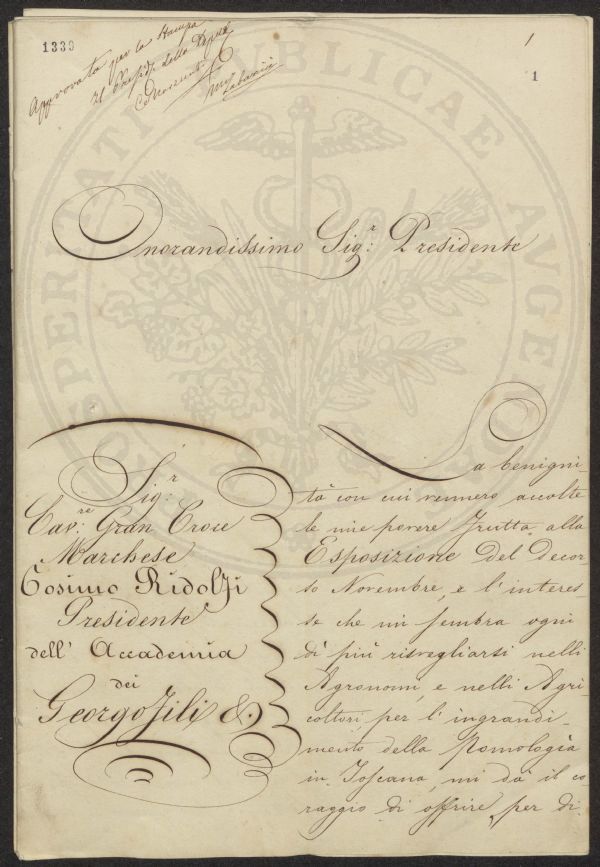 1339
Approvata per la Stampa
Il Presid.e della Deput.
1
1
PROSPERITATI PVBLICAE AVGENDAE
Onorandissimo Sig.r Presidente
Sig.r
Cav.re Gran Croce
Marchese
Cosimo Ridolfi
Presidente
dell' Accademia
dei
Georgofili &.
La benigni-
tà con cui vennero accolte
le mie povere frutta alla
Esposizione del Decor-
so Novembre, e l' interes-
se che mi sembra ogni
dì più risvegliarsi nelli
Agronomi, e nelli Agri
coltori per l' ingrandi-
mento della Pomologia
in Toscana, mi dà il co-
raggio di offrire per di-